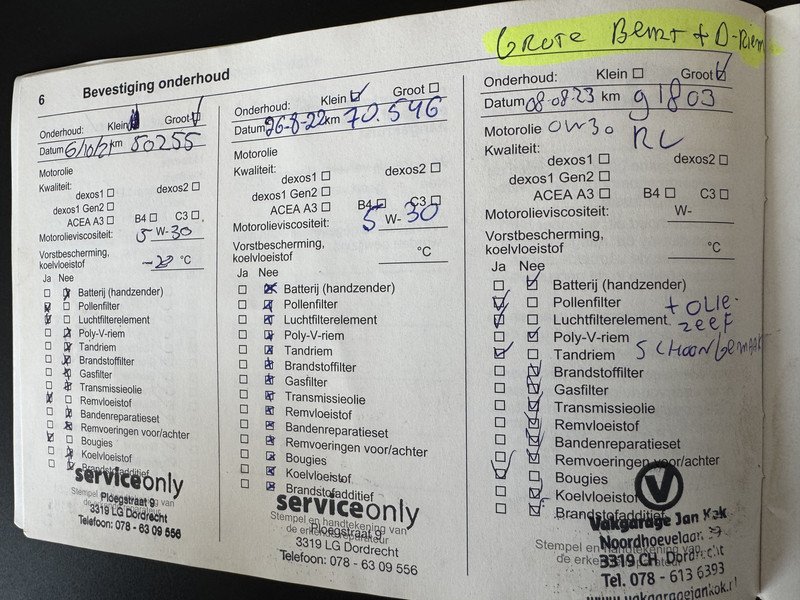 GROTE BEURT + D-Riem
6 Bevestiging onderhoud
Onderhoud: Klein Groot
Datum 6/10/21 km 50255
Motorolie
Kwaliteit:
dexos1 dexos2
dexos1 Gen2
ACEA A3 B4 C3
Motorolieviscositeit: 5 W- 30
Vorstbescherming,
koelvloeistof -20 °C
Ja Nee
Batterij (handzender)
Pollenfilter
Luchtfilterelement
Poly-V-riem
Tandriem
Brandstoffilter
Gasfilter
Transmissieolie
Remvloeistof
Bandenreparatieset
Remvoeringen voor/achter
Bougies
Koelvloeistof
Brandstofadditief
serviceonly
Stempel en handtekening van
de erkende reparateur
Ploegstraat 9
3319 LG Dordrecht
Telefoon: 078 - 63 09 556
Onderhoud: Klein Groot
Datum 26-8-22 km 70.546
Motorolie
Kwaliteit:
dexos1 dexos2
dexos1 Gen2
ACEA A3 B4 C3
Motorolieviscositeit: 5 W- 30
Vorstbescherming,
koelvloeistof °C
Ja Nee
Batterij (handzender)
Pollenfilter
Luchtfilterelement
Poly-V-riem
Tandriem
Brandstoffilter
Gasfilter
Transmissieolie
Remvloeistof
Bandenreparatieset
Remvoeringen voor/achter
Bougies
Koelvloeistof
Brandstofadditief
serviceonly
Stempel en handtekening van
de erkende reparateur
Ploegstraat 9
3319 LG Dordrecht
Telefoon: 078 - 63 09 556
Onderhoud: Klein Groot
Datum 08-08-23 km 91803
Motorolie 0W30 RC
Kwaliteit:
dexos1 dexos2
dexos1 Gen2
ACEA A3 B4 C3
Motorolieviscositeit: W-
Vorstbescherming,
koelvloeistof °C
Ja Nee
Batterij (handzender)
Pollenfilter + OLIE-
Luchtfilterelement zeef
Poly-V-riem
Tandriem SCHOONgemaakt
Brandstoffilter
Gasfilter
Transmissieolie
Remvloeistof
Bandenreparatieset
Remvoeringen voor/achter
Bougies
Koelvloeistof
Brandstofadditief
Stempel en handtekening van
de erkende reparateur
V
Vakgarage Jan Kok
Noordhoevelaan
3319 CH Dordrecht
Tel. 078 - 613 6393
www.vakgaragejankok.nl